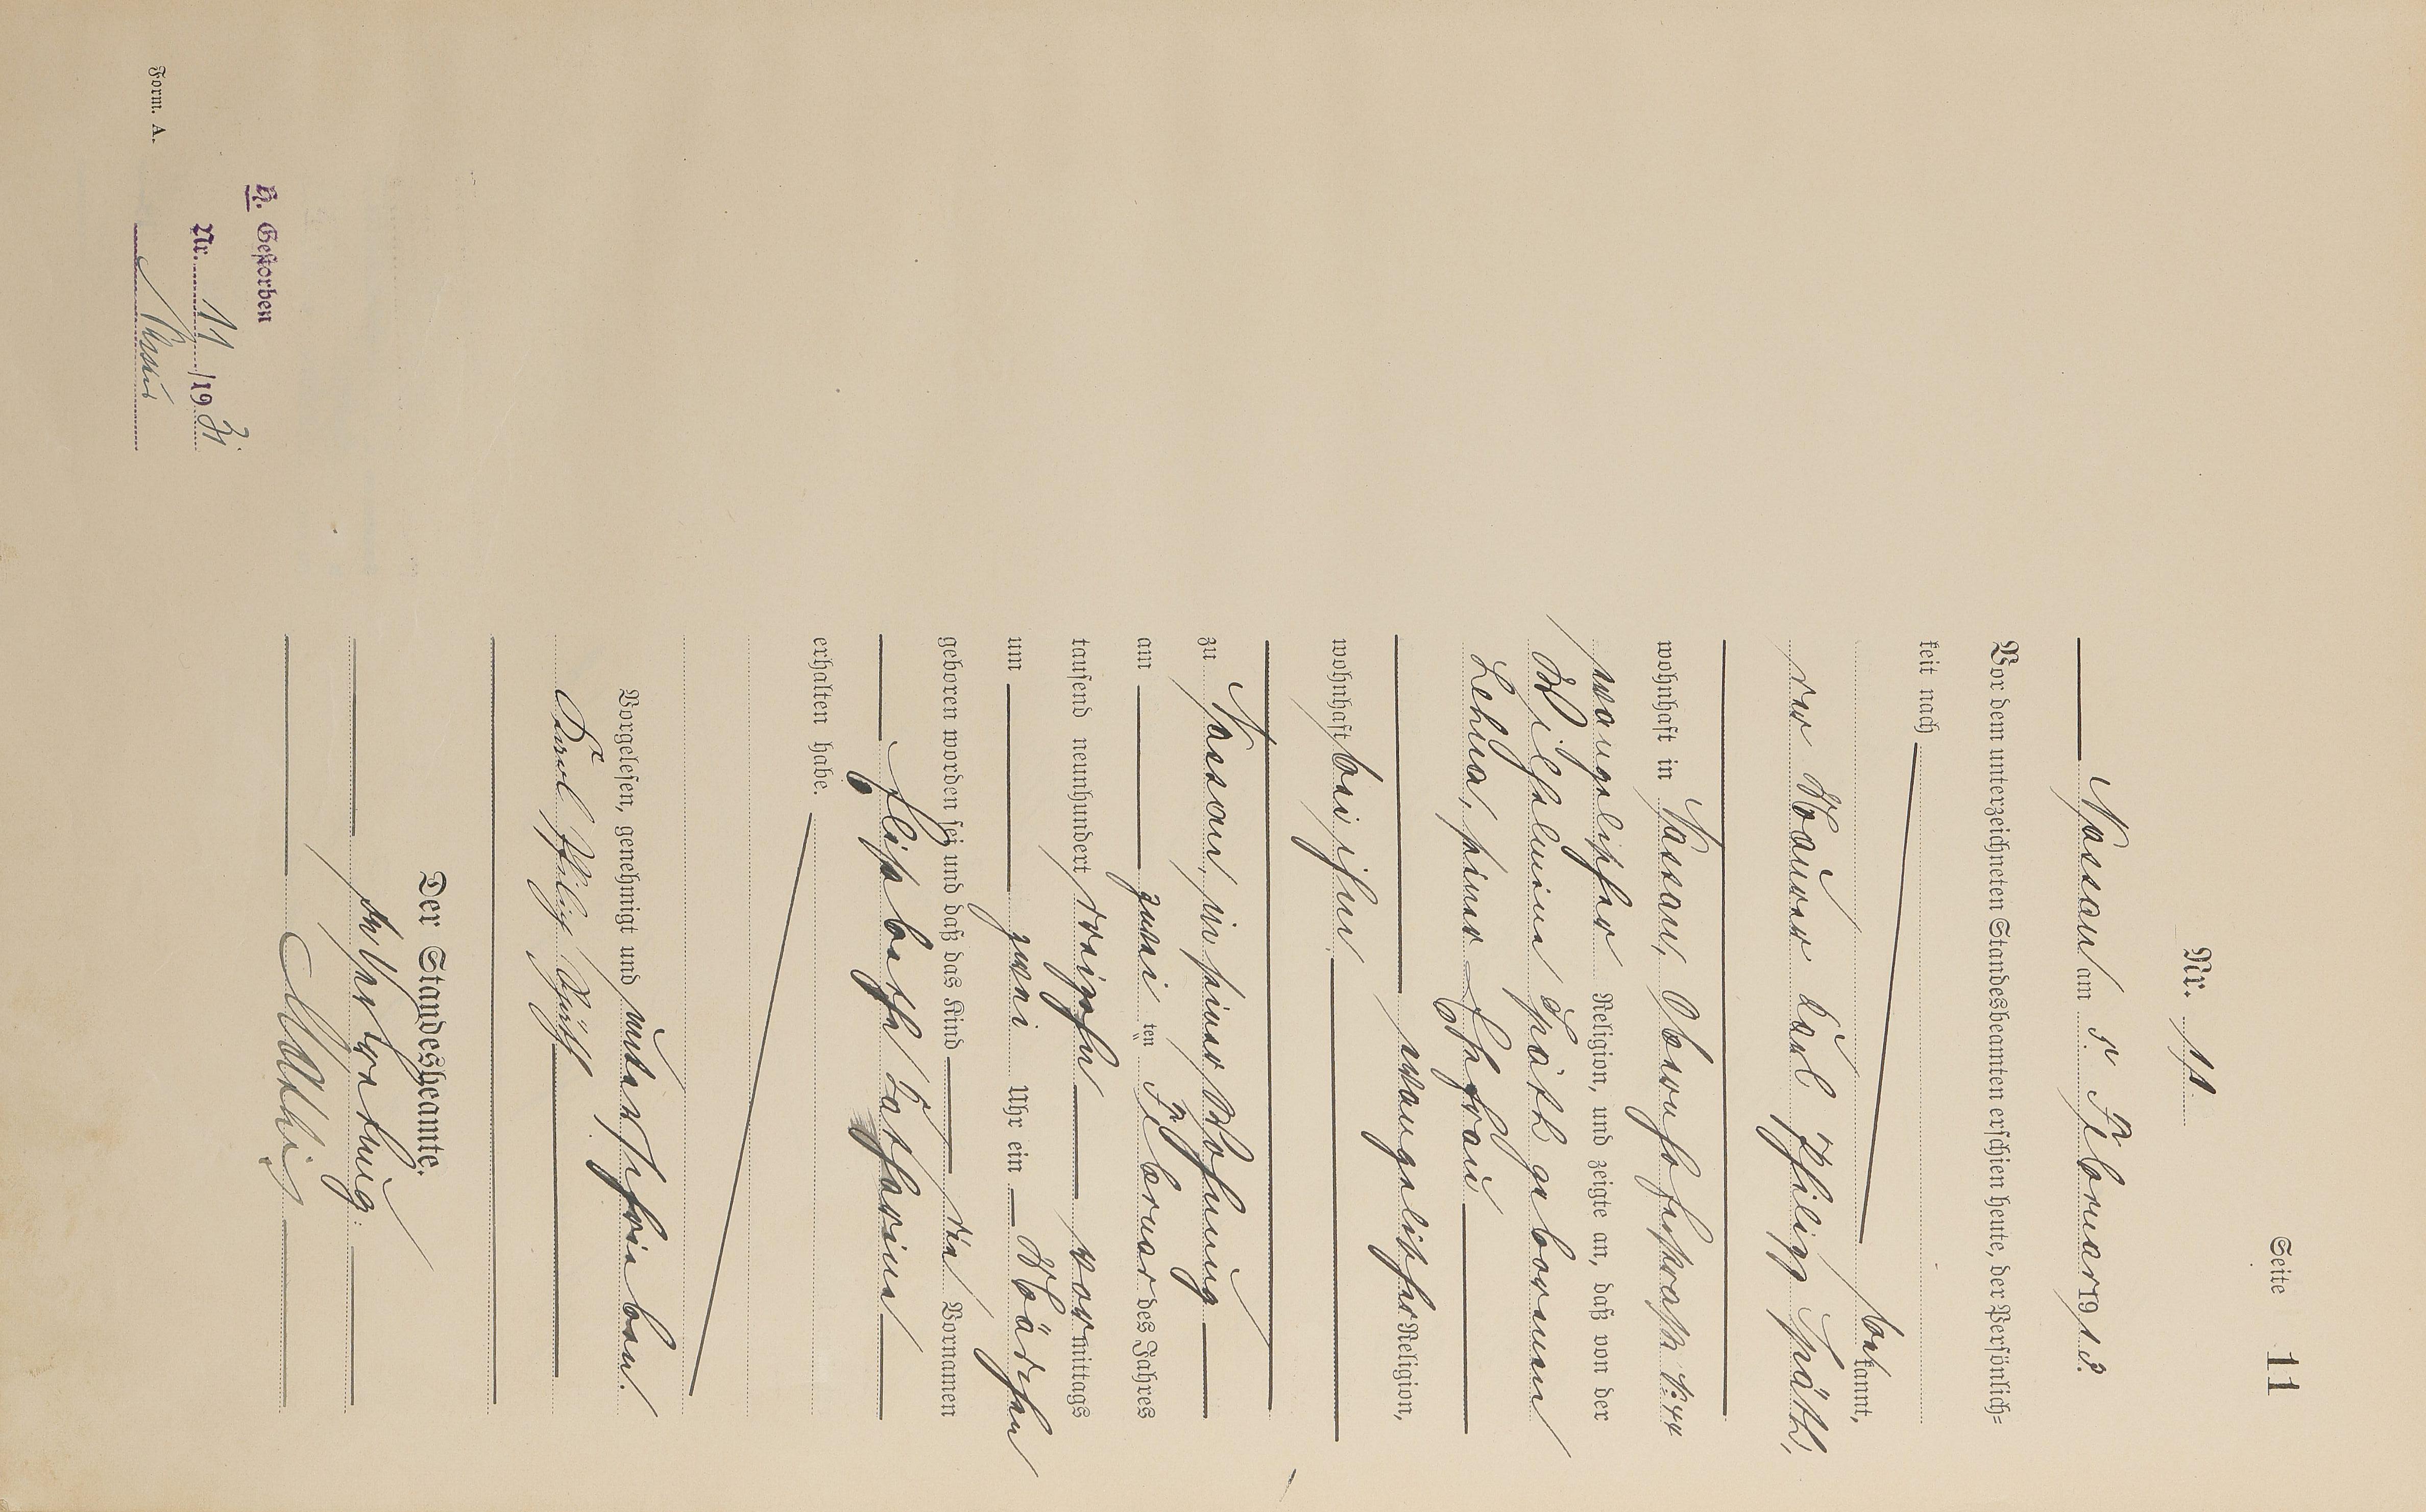 Seite 11
Nr. 11.
Nassau am 5. Februar 1913.
Vor dem unterzeichneten Standesbeamten erschien heute, der Persönlich=
keit nach
bekannt,
der Maurer Karl Philipp Späth,
wohnhaft in Nassau, Obernhoferstraße N: 44
evangelischer Religion, und zeigte an, daß von der
Wilhelmine Späth geborenen
Lehna, seiner Ehefrau
evangelischer Religion,
wohnhaft bei ihm
zu Nassau, in seiner Wohnung
am zwei ten Februar des Jahres
tausend neunhundert dreizehn vormittags
um zwei Uhr ein Mädchen
geboren worden sei und daß das Kind die Vornamen
Elisabethe Katharina
erhalten habe.
Vorgelesen, genehmigt und unterschrieben.
Karl Philipp Späth
Der Standesbeamte.
In Vertretung:
H. Gestorben
Nr. 11 /1931
Nassau
Form. A.